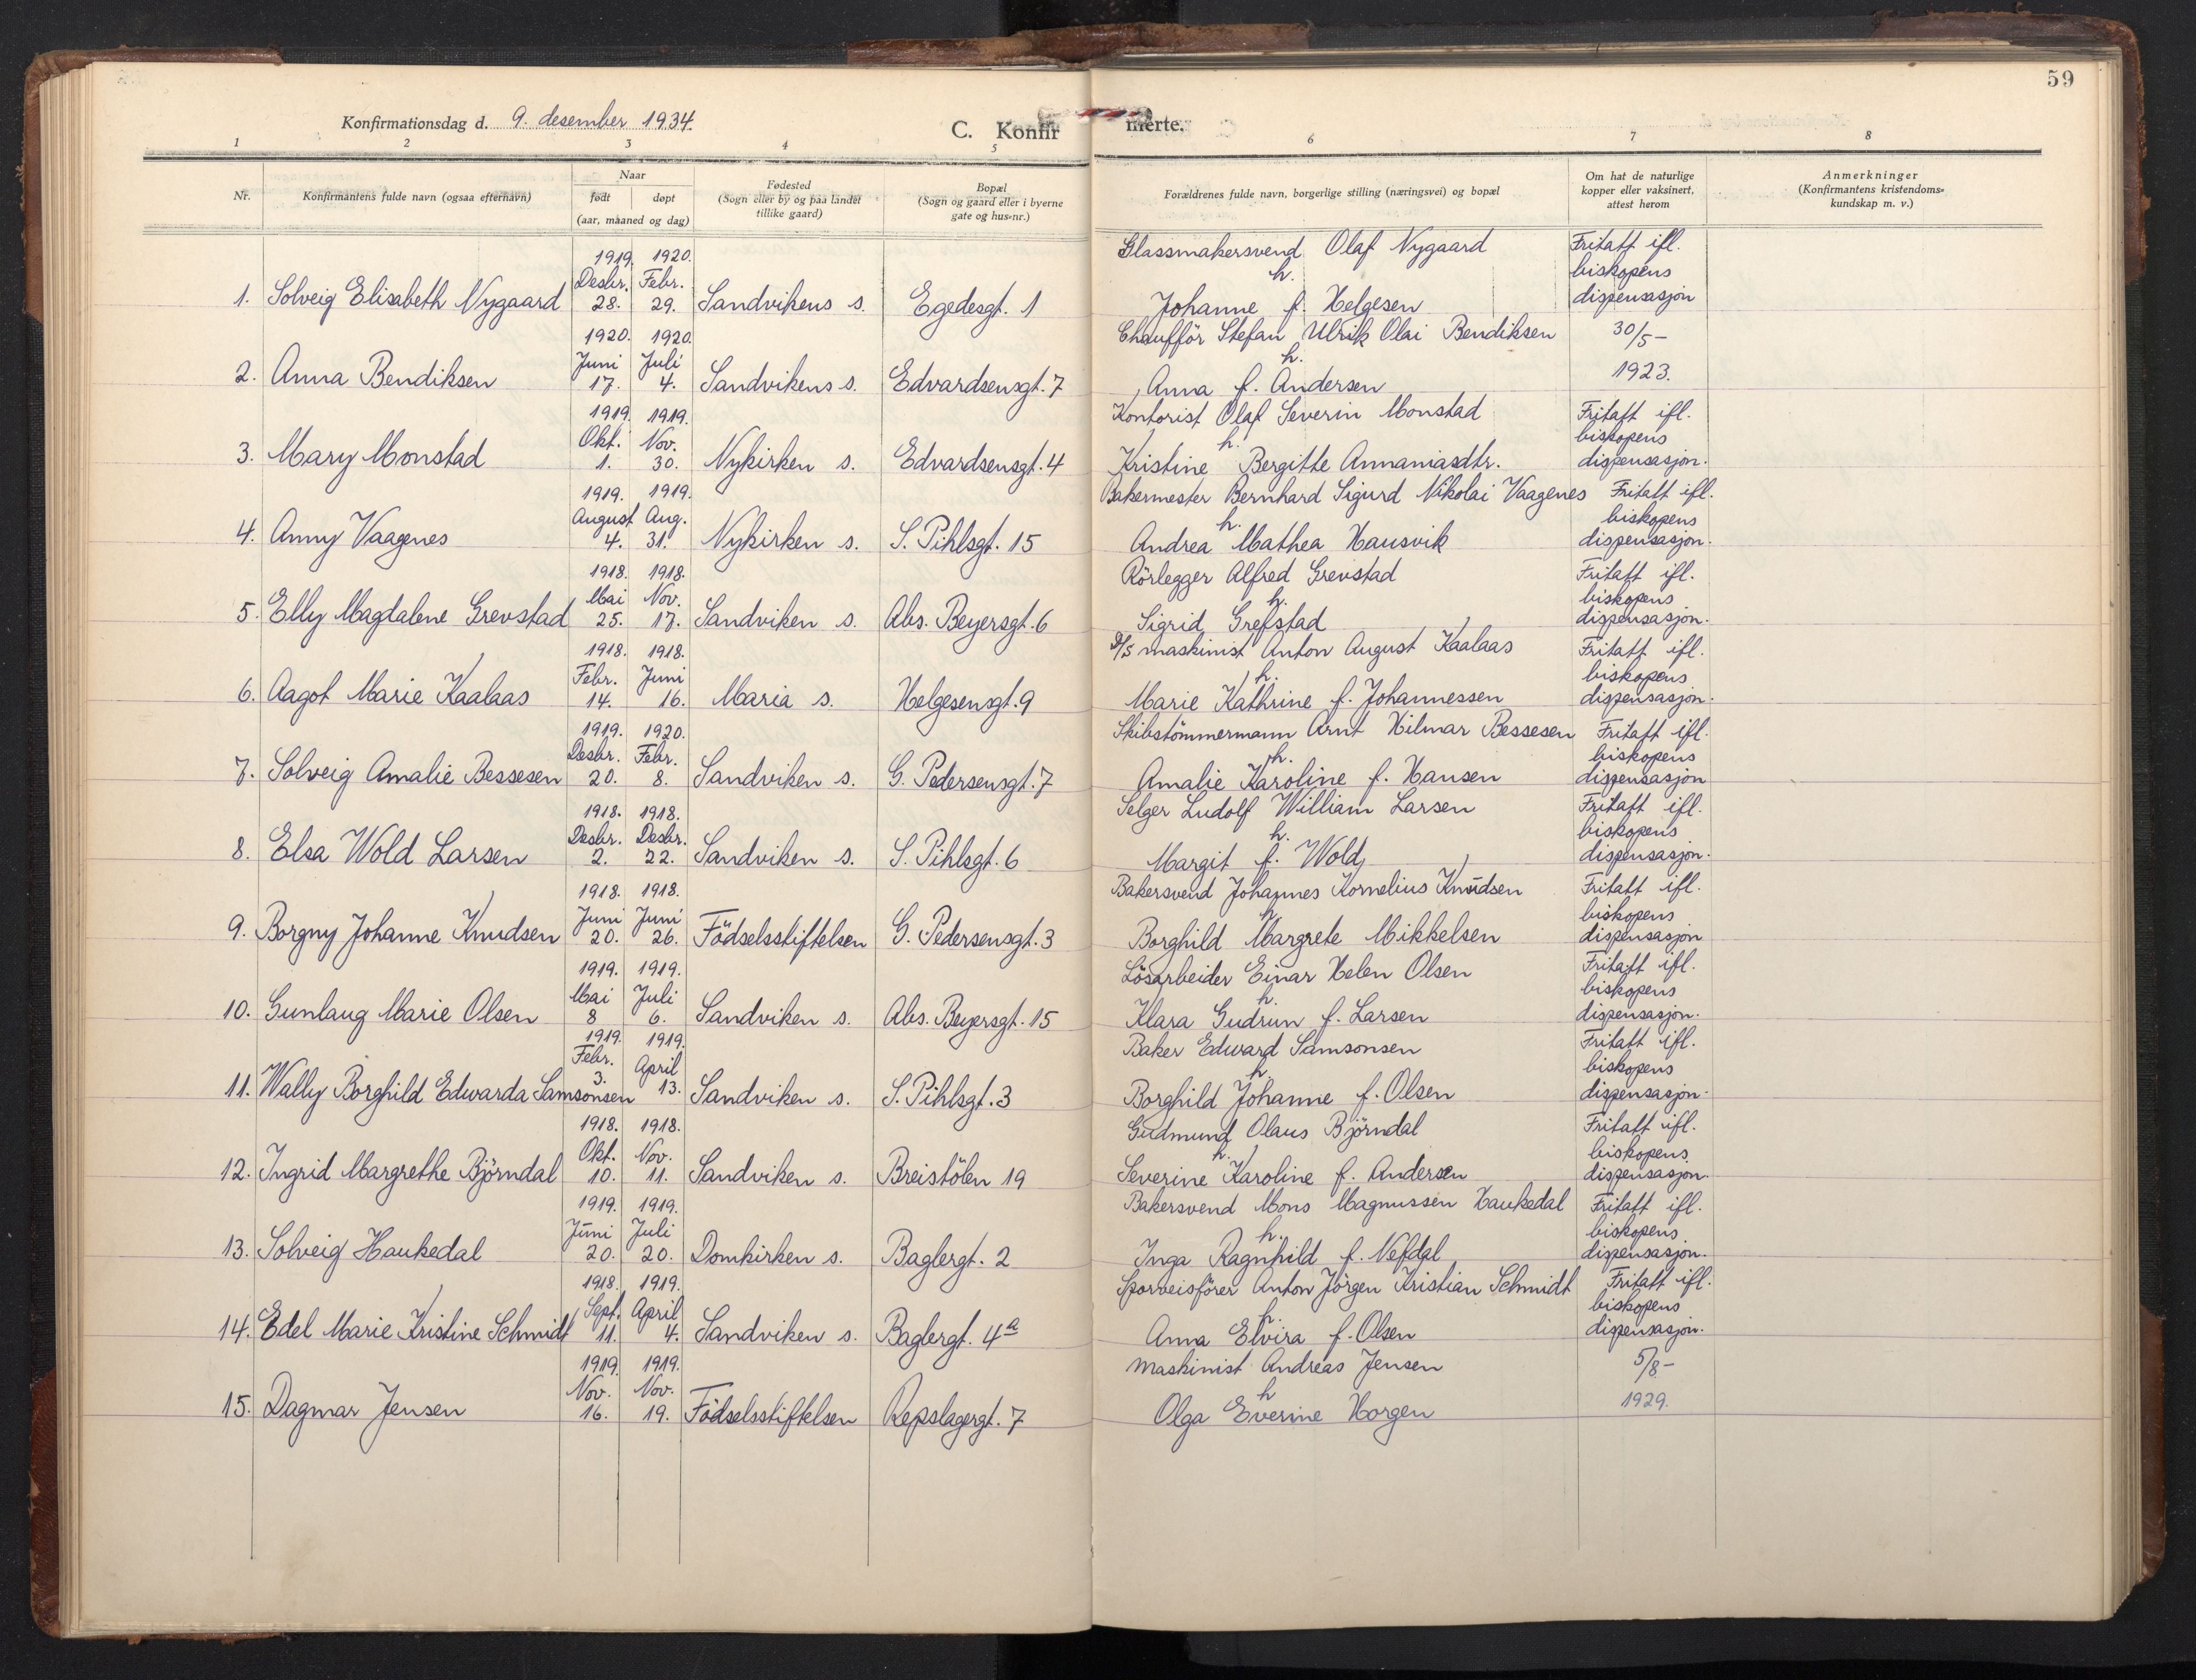 59
Konfirmationsdag d. 9. desember 1934.
C. Konfir merte.
1 2 3 4 5 6 7 8
Nr.
Konfirmantens fulde navn (ogsaa efternavn)
Naar
født døpt
(aar, maaned og dag)
Fødested
(Sogn eller by og paa landet
tillike gaard)
Bopæl
(Sogn og gaard eller i byerne
gate og hus-nr.)
Forældrenes fulde navn, borgerlige stilling (næringsvei) og bopæl
Om hat de naturlige
kopper eller vaksinert,
attest herom
Anmerkninger
(Konfirmantens kristendoms-
kundskap m. v.)
1919. 1920. Glassmakersvend Olaf Nygaard Fritatt ifl.
Desbr. Febr. h. biskopens
1. Solveig Elisabeth Nygaard 28. 29. Sandvikens s. Egedesgt. 1 Johanne f. Helgesen dispensasjon
1920. 1920. Chaufför Stefan Ulrik Olai Bendiksen 30/5-
Juni Juli h.
2. Anna Bendiksen 17. 4. Sandvikens s. Edvardsensgt. 7 Anna f. Andersen 1923.
1919. 1919. Kontorist Olaf Severin Monstad Fritatt ifl.
Okt. Nov. h. biskopens
3. Mary Monstad 1. 30. Nykirken s. Edvardsensgt. 4 Kristine Bergitte Annaniasdtr. dispensasjon.
1919. 1919. Bakermester Bernhard Sigurd Nikolai Vaagenes Fritatt ifl.
August Aug. h. biskopens
4. Anny Vaagenes 4. 31. Nykirken s. S. Pihlsgt. 15 Andrea Mathea Hausvik dispensasjon.
1918. 1918. Rörlegger Alfred Grevstad Fritatt ifl.
Mai Nov. h. biskopens
5. Elly Magdalene Grevstad 25. 17. Sandviken s. Abs. Beyersgt. 6 Sigrid Grefstad dispensasjon.
1918. 1918. D/S maskinist Anton August Kaalaas Fritatt ifl.
Febr. Juni h. biskopens
6. Aagot Marie Kaalaas 14. 16. Maria s. Helgesensgt. 9 Marie Kathrine f. Johannessen dispensasjon.
1919. 1920. Skibstömmermann Arnt Hilmar Bessesen Fritatt ifl.
Desbr. Febr. h. biskopens
7. Solveig Amalie Bessesen 20. 8. Sandviken s. G. Pedersensgt. 7 Amalie Karoline f. Hansen dispensasjon
1918. 1918. Selger Ludolf William Larsen Fritatt ifl.
Desbr. Desbr. h. biskopens
8. Elsa Wold Larsen 2. 22. Sandviken s. S. Pihlsgt. 6 Margit f. Wold dispensasjon.
1918. 1918. Bakersvend Johannes Kornelius Knudsen Fritatt ifl.
Juni Juni h. biskopens
9. Borgny Johanne Knudsen 20. 26. Födselsstiftelsen G. Pedersensgt. 3 Borghild Margrete Mikkelsen dispensasjon
1919. 1919. Lösarbeider Einar Helen Olsen Fritatt ifl.
Mai Juli h. biskopens
10. Gunlaug Marie Olsen 8 6. Sandviken s. Abs. Beyersgt. 15 Klara Gudrun f. Larsen dispensasjon.
1919. 1919. Baker Edward Samsonsen Fritatt ifl.
Febr. April h. biskopens
11. Wally Borghild Edwarda Samsonsen 3. 13. Sandviken s. S. Pihlsgt. 3 Borghild Johanne f. Olsen dispensasjon.
1918. 1918. Gudmund Olaus Björndal Fritatt ifl.
Okt. Nov. h. biskopens
12. Ingrid Margrethe Björndal 10. 11. Sandviken s. Breistölen 19 Severine Karoline f. Andersen dispensasjon.
1919. 1919. Bakersvend Mons Magnussen Haukedal Fritatt ifl.
Juni Juli h. biskopens
13. Solveig Haukedal 20. 20. Domkirken s. Baglergt. 2 Inga Ragnhild f. Nefdal dispensasjon.
1918. 1919. Sporveisförer Anton Jörgen Kristian Schmidt Fritatt ifl.
Sept. April h. biskopens
14. Edel Marie Kristine Schmidt 11. 4. Sandviken s. Baglergt. 4a Anna Elvira f. Olsen dispensasjon.
1919. 1919. Maskinist Andreas Jensen 5/8-
Nov. Nov. h
15. Dagmar Jensen 16. 19. Födselsstiftelsen Repslagergt. 7 Olga Everine Horgen 1929.